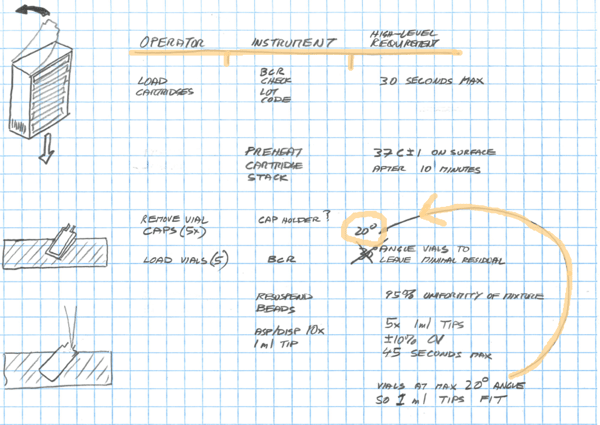 OPERATOR INSTRUMENT HIGH-LEVEL
REQUIREMENT
LOAD
CARTRIDGES
BCR
CHECK
LOT
CODE
30 SECONDS MAX
PREHEAT
CARTRIDGE
STACK
37 C ± 1 ON SURFACE
AFTER 10 MINUTES
REMOVE VIAL
CAPS (5X)
CAP HOLDER?
20°
LOAD VIALS (5)
BCR
ANGLE VIALS TO
LEAVE MINIMAL RESIDUAL
RESUSPEND
BEADS
95% UNIFORMITY OF MIXTURE
ASP/DISP 10x
1 ml TIP
5x 1ml TIPS
±10% CV
45 SECONDS MAX
VIALS AT MAX 20° ANGLE
SO 1 ml TIPS FIT